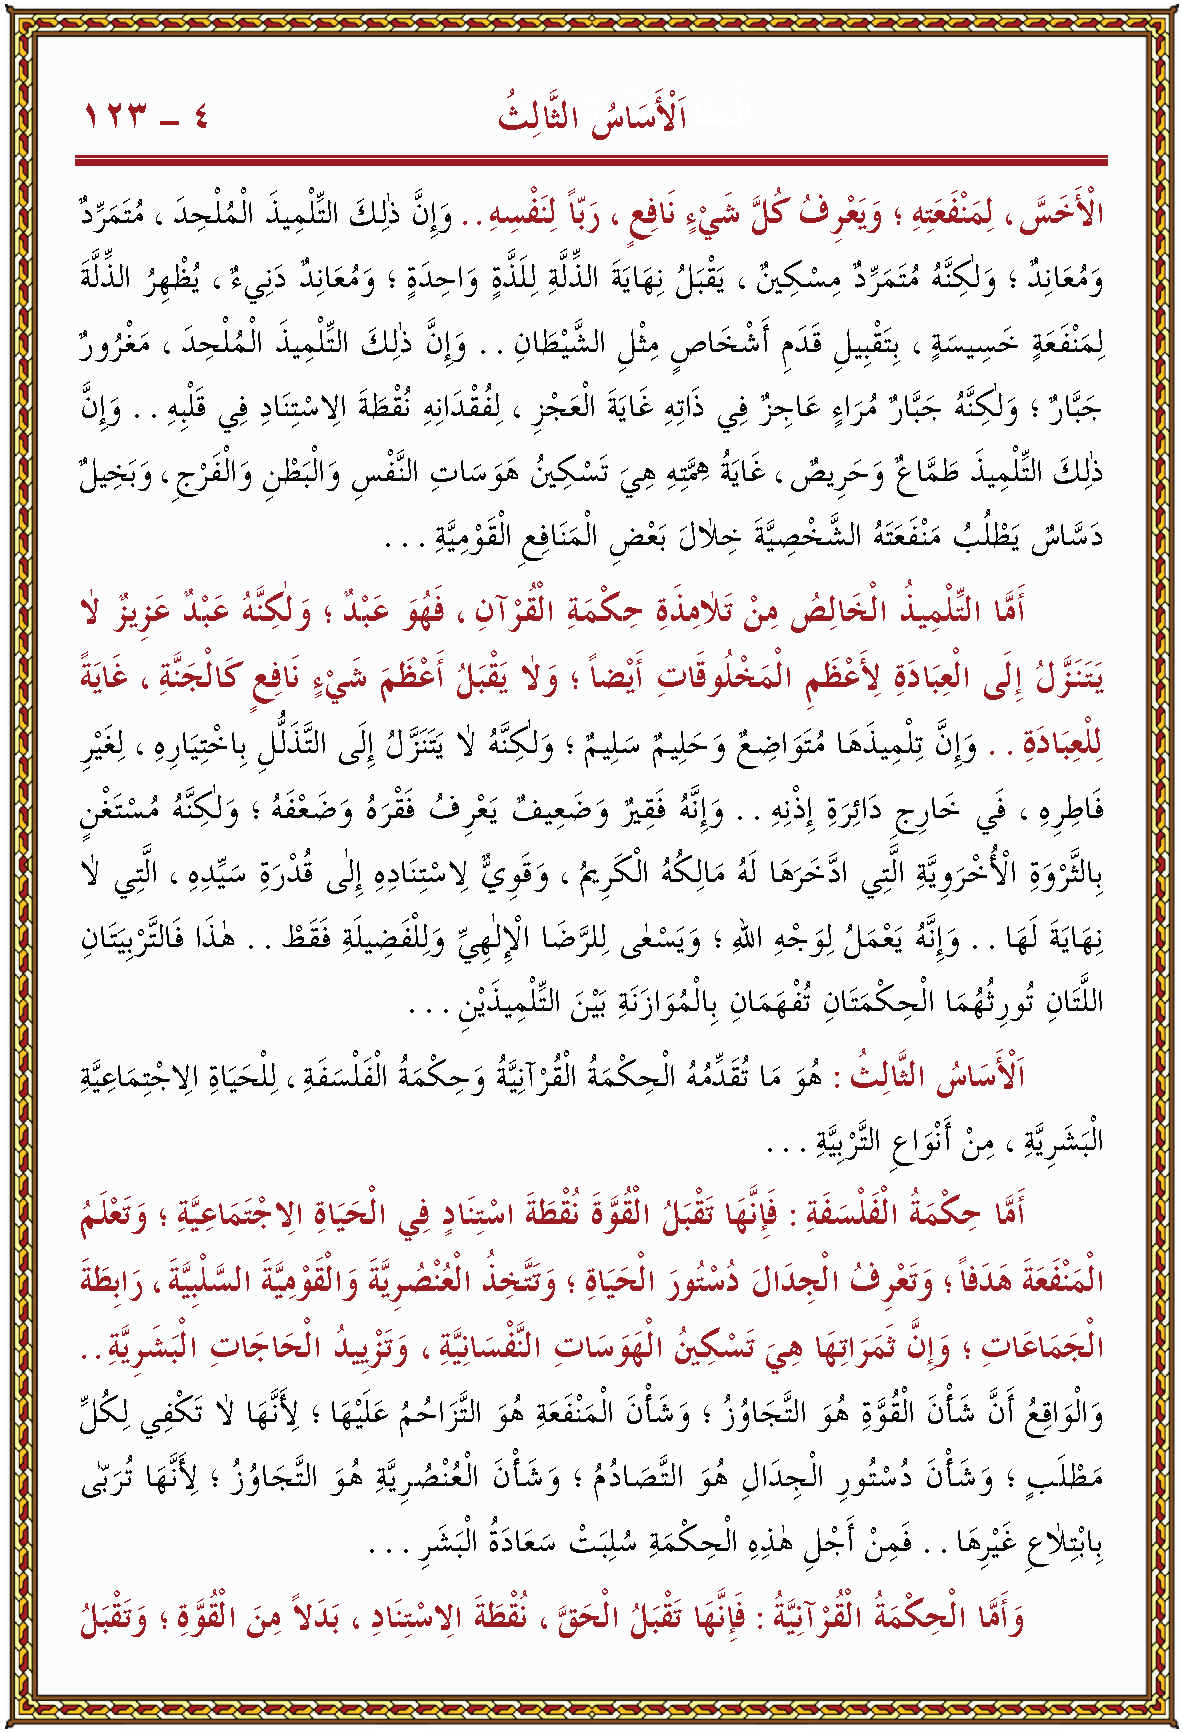 اَلْأَسَاسُ الثَّالِثُ
٤ - ١٢٣
الْأَخَسَّ ، لِمَنْفَعَتِهِ ؛ وَيَعْرِفُ كُلَّ شَيْءٍ نَافِعٍ ، رَبّاً لِنَفْسِهِ . . وَإِنَّ ذٰلِكَ التِّلْمِيذَ الْمُلْحِدَ ، مُتَمَرِّدٌ
وَمُعَانِدٌ ؛ وَلٰكِنَّهُ مُتَمَرِّدٌ مِسْكِينٌ ، يَقْبَلُ نِهَايَةَ الذِّلَّةِ لِلَذَّةٍ وَاحِدَةٍ ؛ وَمُعَانِدٌ دَنِيءٌ ، يُظْهِرُ الذِّلَّةَ
لِمَنْفَعَةٍ خَسِيسَةٍ ، بِتَقْبِيلِ قَدَمِ أَشْخَاصٍ مِثْلِ الشَّيْطَانِ . . وَإِنَّ ذٰلِكَ التِّلْمِيذَ الْمُلْحِدَ ، مَغْرُورٌ
جَبَّارٌ ؛ وَلٰكِنَّهُ جَبَّارٌ مُرَاءٍ عَاجِزٌ فِي ذَاتِهِ غَايَةَ الْعَجْزِ ، لِفُقْدَانِهِ نُقْطَةَ الِاسْتِنَادِ فِي قَلْبِهِ . . وَإِنَّ
ذٰلِكَ التِّلْمِيذَ طَمَّاعٌ وَحَرِيصٌ ، غَايَةُ هِمَّتِهِ هِيَ تَسْكِينُ هَوَسَاتِ النَّفْسِ وَالْبَطْنِ وَالْفَرْجِ ، وَبَخِيلٌ
دَسَّاسٌ يَطْلُبُ مَنْفَعَتَهُ الشَّخْصِيَّةَ خِلَالَ بَعْضِ الْمَنَافِعِ الْقَوْمِيَّةِ . . .
أَمَّا التِّلْمِيذُ الْخَالِصُ مِنْ تَلَامِذَةِ حِكْمَةِ الْقُرْآنِ ، فَهُوَ عَبْدٌ ؛ وَلٰكِنَّهُ عَبْدٌ عَزِيزٌ لَا
يَتَنَزَّلُ إِلَى الْعِبَادَةِ لِأَعْظَمِ الْمَخْلُوقَاتِ أَيْضاً ؛ وَلَا يَقْبَلُ أَعْظَمَ شَيْءٍ نَافِعٍ كَالْجَنَّةِ ، غَايَةً
لِلْعِبَادَةِ . . وَإِنَّ تِلْمِيذَهَا مُتَوَاضِعٌ وَحَلِيمٌ سَلِيمٌ ؛ وَلٰكِنَّهُ لَا يَتَنَزَّلُ إِلَى التَّذَلُّلِ بِاخْتِيَارِهِ ، لِغَيْرِ
فَاطِرِهِ ، فَي خَارِجِ دَائِرَةِ إِذْنِهِ . . وَإِنَّهُ فَقِيرٌ وَضَعِيفٌ يَعْرِفُ فَقْرَهُ وَضَعْفَهُ ؛ وَلٰكِنَّهُ مُسْتَغْنٍ
بِالثَّرْوَةِ الْأُخْرَوِيَّةِ الَّتِي ادَّخَرَهَا لَهُ مَالِكُهُ الْكَرِيمُ ، وَقَوِيٌّ لِاسْتِنَادِهِ إِلٰى قُدْرَةِ سَيِّدِهِ ، الَّتِي لَا
نِهَايَةَ لَهَا . . وَإِنَّهُ يَعْمَلُ لِوَجْهِ اللهِ ؛ وَيَسْعٰى لِلرَّضَا الْإِلٰهِيِّ وَلِلْفَضِيلَةِ فَقَطْ . . هٰذَا فَالتَّرْبِيَتَانِ
اللَّتَانِ تُورِثُهُمَا الْحِكْمَتَانِ تُفْهَمَانِ بِالْمُوَازَنَةِ بَيْنَ التِّلْمِيذَيْنِ . . .
اَلْأَسَاسُ الثَّالِثُ : هُوَ مَا تُقَدِّمُهُ الْحِكْمَةُ الْقُرْآنِيَّةُ وَحِكْمَةُ الْفَلْسَفَةِ ، لِلْحَيَاةِ الِاجْتِمَاعِيَّةِ
الْبَشَرِيَّةِ ، مِنْ أَنْوَاعِ التَّرْبِيَّةِ . . .
أَمَّا حِكْمَةُ الْفَلْسَفَةِ : فَإِنَّهَا تَقْبَلُ الْقُوَّةَ نُقْطَةَ اسْتِنَادٍ فِي الْحَيَاةِ الِاجْتَمَاعِيَّةِ ؛ وَتَعْلَمُ
الْمَنْفَعَةَ هَدَفاً ؛ وَتَعْرِفُ الْجِدَالَ دُسْتُورَ الْحَيَاةِ ؛ وَتَتَّخِذُ الْعُنْصُرِيَّةَ وَالْقَوْمِيَّةَ السَّلْبِيَّةَ ، رَابِطَةَ
الْجَمَاعَاتِ ؛ وَإِنَّ ثَمَرَاتِهَا هِيَ تَسْكِينُ الْهَوَسَاتِ النَّفْسَانِيَّةِ ، وَتَزْيِيدُ الْحَاجَاتِ الْبَشَرِيَّةِ . .
وَالْوَاقِعُ أَنَّ شَأْنَ الْقُوَّةِ هُوَ التَّجَاوُزُ ؛ وَشَأْنَ الْمَنْفَعَةِ هُوَ التَّزَاحُمُ عَلَيْهَا ؛ لِأَنَّهَا لَا تَكْفِي لِكُلِّ
مَطْلَبٍ ؛ وَشَأْنَ دُسْتُورِ الْجِدَالِ هُوَ التَّصَادُمُ ؛ وَشَأْنَ الْعُنْصُرِيَّةِ هُوَ التَّجَاوُزُ ؛ لِأَنَّهَا تُرَبّٰى
بِابْتِلَاعِ غَيْرِهَا . . فَمِنْ أَجْلِ هٰذِهِ الْحِكْمَةِ سُلِبَتْ سَعَادَةُ الْبَشَرِ . . .
وَأَمَّا الْحِكْمَةُ الْقُرْآنِيَّةُ : فَإِنَّهَا تَقْبَلُ الْحَقَّ ، نُقْطَةَ الِاسْتِنَادِ ، بَدَلاً مِنَ الْقُوَّةِ ؛ وَتَقْبَلُ